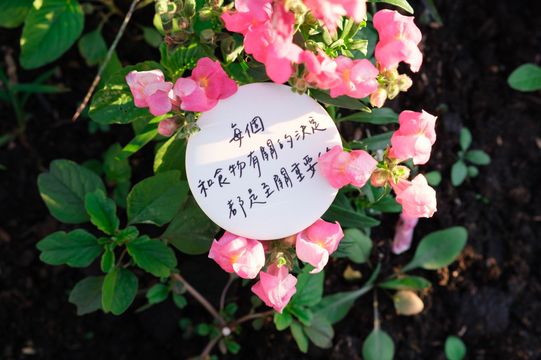 每個
和食物有關的決定
都是主關重要的